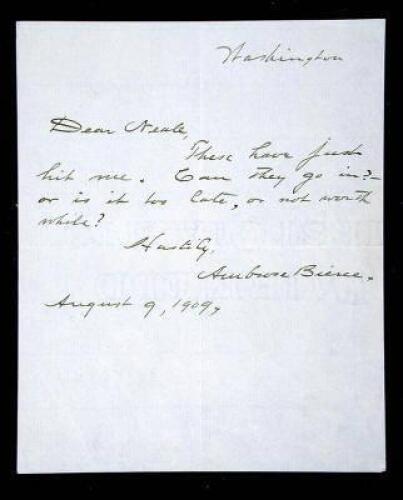 Washington
Dear Neale,
These have just
hit me. Can they go in?–
or is it too late, or not worth
while?
Hastily,
Ambrose Bierce.
August 9, 1909.